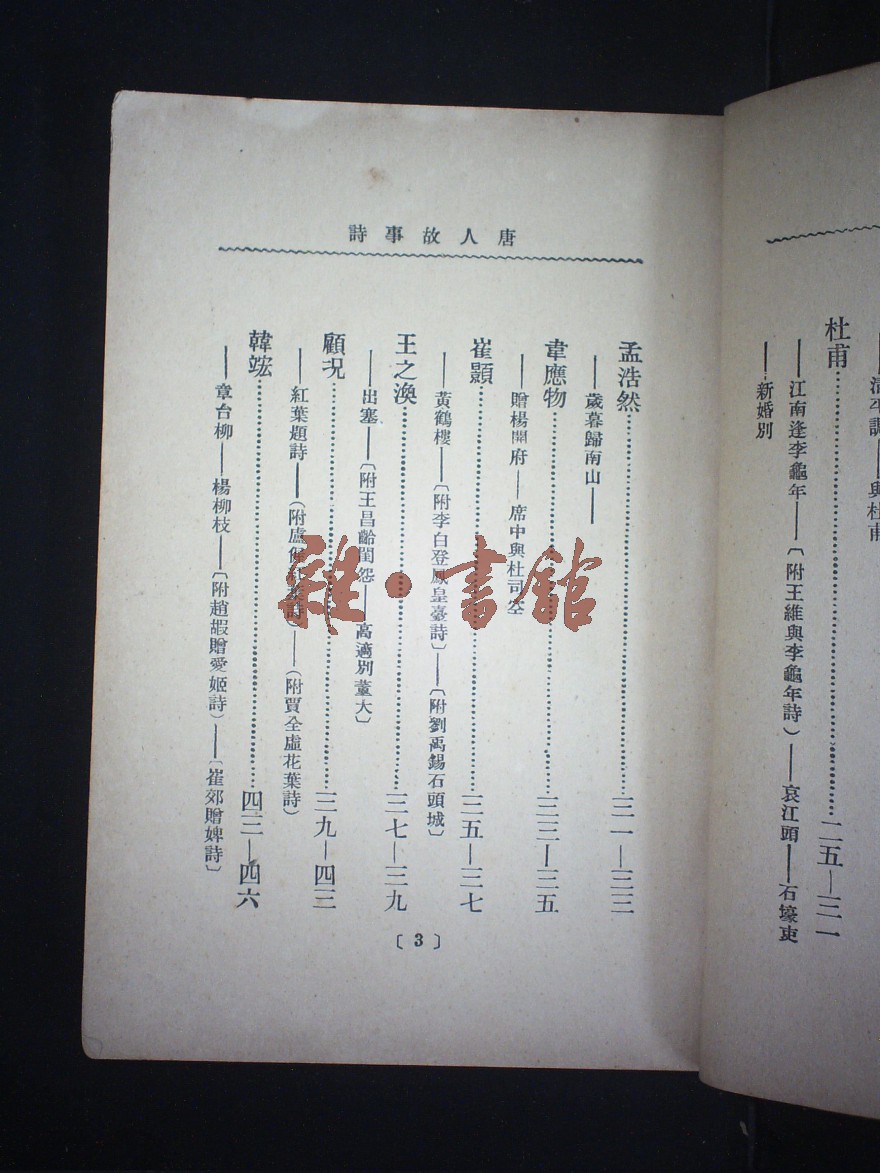 清平調——與杜甫
杜甫……二五—三一
——江南逢李龜年——〔附王維與李龜年詩)——哀江頭——石壕吏
——新婚別
唐人故事詩
孟浩然……三一—三三
——歲暮歸南山——
韋應物……三三—三五
——贈楊開府——席中與杜司空
崔顥……三五—三七
——黃鶴樓——〔附李白登鳳皇臺詩〕——〔附劉禹錫石頭城〕
王之渙……三七—三九
——出塞——〔附王昌齡閨怨——高適別董大〕
顧况……三九—四三
——紅葉題詩——(附盧詩)——(附賈全虛花葉詩)
韓竑……四三—四六
——章台柳——楊柳枝——〔附趙嘏贈愛姬詩)——〔崔郊贈婢詩〕
〔3〕
雜·書館